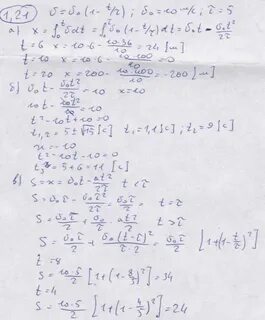 1,21 υ = υ₀ (1 - t/τ) ; υ₀ = 10 м/с ; τ = 5
а) x = ∫₀ᵗ υdt = ∫₀ᵗ υ₀ (1 - t/τ) dt = υ₀t - υ₀t²/2τ
t = 6 x = 10·6 - 10·36/10 = 24 [м]
t = 10 x = 10·10 - 10·100/10 = 0
t = 20 x = 200 - 10·400/10 = -200 [м]
б) υ₀t - υ₀t²/2τ = 10 x = 10
10t - 10t²/10 = 10
t² - 10t + 10 = 0
t₁,₂ = 5 ± √15 [с] t₁ = 1,1 [с] t₂ = 9 [с]
x = -10
t² - 10t - 10 = 0
t₃ = 5 + 6 = 11 [с]
в) S = x = υ₀t - at²/2τ t < τ
S = υ₀τ - υ₀τ²/2τ = υ₀τ/2 t = τ
S = υ₀τ/2 + υ₀/τ at²/2 t > τ
S = υ₀τ/2 + υ₀(t-τ)²/τ·2 = υ₀τ/2 [1 + (1 - t/τ)²]
t = 8
S = 10·5/2 [1 + (1 - 8/5)²] = 34
t = 4
S = 10·5/2 [1 + (1 - 4/5)²] = 24